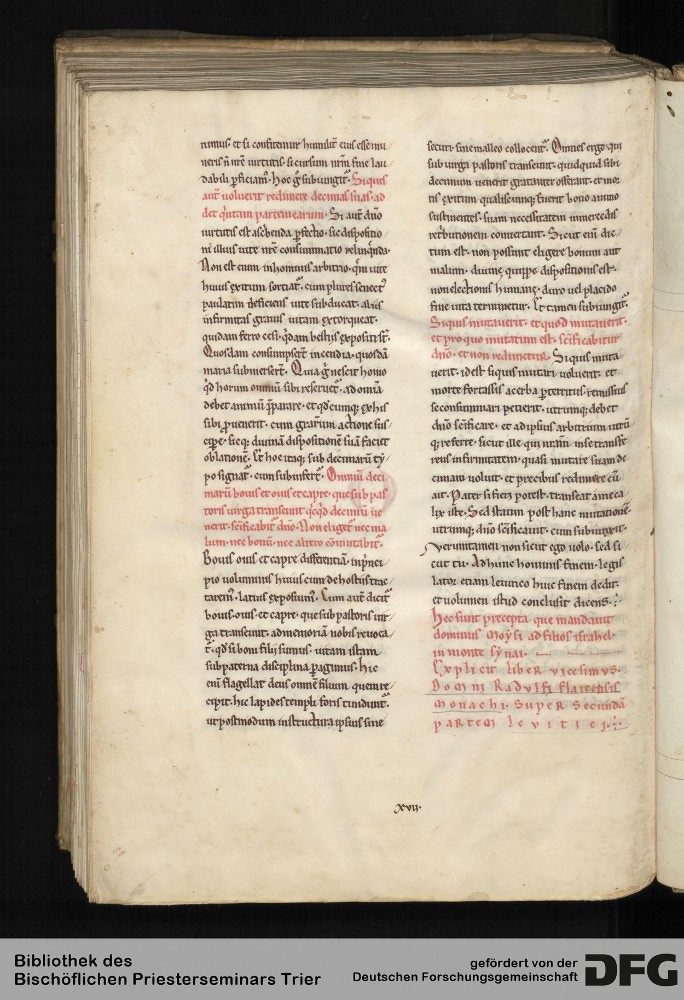 nimus. et si confitemur humilit̄ eius esse mu-
neris
uirtutis. si cursum nr̄m fine lau-
dabili ꝑficiam᷑. hoc g̊ subiungit᷑. Si quis
aut̄ uoluerit redimere decimas suas. ad
det q̇ntam partem earum. Si aut̄ dn̄o
uirtutis est ascribenda ꝑfectio. sic dispositio
ni illius uite nr̄e consummatio relinq̇nda.
Non est enim in hominis arbitrio. q̇m uite
huius exitum sortiat᷑. cum plures senect᷒
paulatim deficiens uite subducat. alus
infirmitas grauis uitam extorqueat.
quidam ferro cesi. q̇dam bestiis expositi st̄.
Quosdam consumpser̄t incendia. quosdā
maria submerser̄t. Quia g̊ nescit homo
qd̄ horum omniū sibi reseruet᷑. ad omīa
debet animū p̄parare. et qd̄cumq; ex his
sibi ꝓuenerit. cum gr̄arum actione sus-
cipe. sicq; diuinā dispositionē suā facit
oblationē. Ut hoc itaq; sub decimarū ty-
po signat᷑. cum subinfert᷑. Omniū deci
marū bouis et ouis et capre. que sub pas
toris uirga transeunt q̇cqd̄ decimū ue
nerit. sc̄ificabit᷑ dn̄o. Non eliget᷑ nec ma
lum. nec bonū. nec altero cōmutabit᷑.
Bouis ouis et capre differentiā. in p̄nci-
pio uoluminis huius cum de hostiis trac-
tarem᷒. latius exposuim᷒. Cum aut̄ dicit᷑
bouis. ouis. et capre. que sub pastoris uir-
ga transeunt. ad memoriā nobis reuoca-
t᷑. qd̄ si boni filii sumus. uitam istam
sub paterna disciplina ꝑagimus. Hic
eni flagellat deus omnē filium quem re-
cipit. hic lapides templi foris tunduntᷣ.
ut postmodum in structura ipsius sine
securi. sine malleo collocent᷑. Omnes ergo qui
sub uirga pastoris transeunt. quidquid sibi
decimum uenerit gratanter offerant. et mor
tis exitum qualiscumq; fuerit bono animo
sustinentes. suam necessitatem in mercedis
retributionem conuertant. Sicut eni dic-
tum est. non possunt eligere bonum aut
malum. diuine quippe dispositionis est.
non electionis humane. duro uel placido
fine uita terminetur. Ut tamen subiungit᷑.
Si quis mutauerit. et quod mutauerit.
et pro quo mutatum est. sc̄ificabitur
dn̄o. et non redimetur. Si quis muta
uerit. id est si quis mutari uoluerit. et
morte fortassis acerba ꝑterritus. remissius
se consummari petierit. utrumq; debet
dn̄o sc̄ificare. et ad ipsius arbitrium utrū
q; referre. sicut ille qui nr̄am in se transfe-
rens infirmitatem. quasi mutare suam de
cimam uoluit. et precibus redimere cū
ait. Pater si fieri potest. transeat a me ca-
lix iste. Sed statim post hanc mutationē
utrumq; dn̄o sc̄ificauit. cum subiunxit.
Verumtamen non sicut ego uolo. sed si
cut tu. Ad hunc hominis finem. legis
lator etiam leuitico huic finem dedit.
et uolumen istud conclusit dicens.
Hec sunt precepta que mandauit
dominus moysi ad filios israhel.
in monte synai.
Explicit liber vicesimus.
Domni Radulfi flaicensis
Monachi. Super secundā
partem levitici.
xvii.
Bibliothek des
Bischöflichen Priesterseminars Trier
gefördert von der
Deutschen Forschungsgemeinschaft
DFG